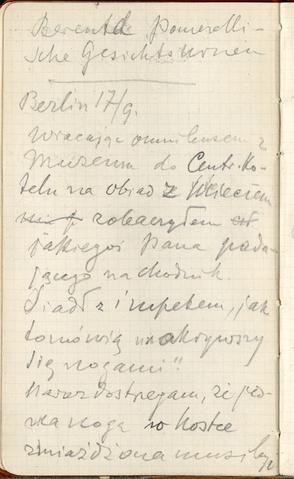 Berendt Pomerelli-
sche Gesichtsurnen
Berlin 17/9.
Wracając omnibusem z
Muzeum do Centr. Ho-
telu na obiad z
zobaczyłem
jakiegoś pana pada-
jącego na chodnik.
Siadł z impetem, jak
to mówią „nakrywszy
się nogami".
Naraz dostrzegam, że jed-
na noga w kostce
zmiażdżona